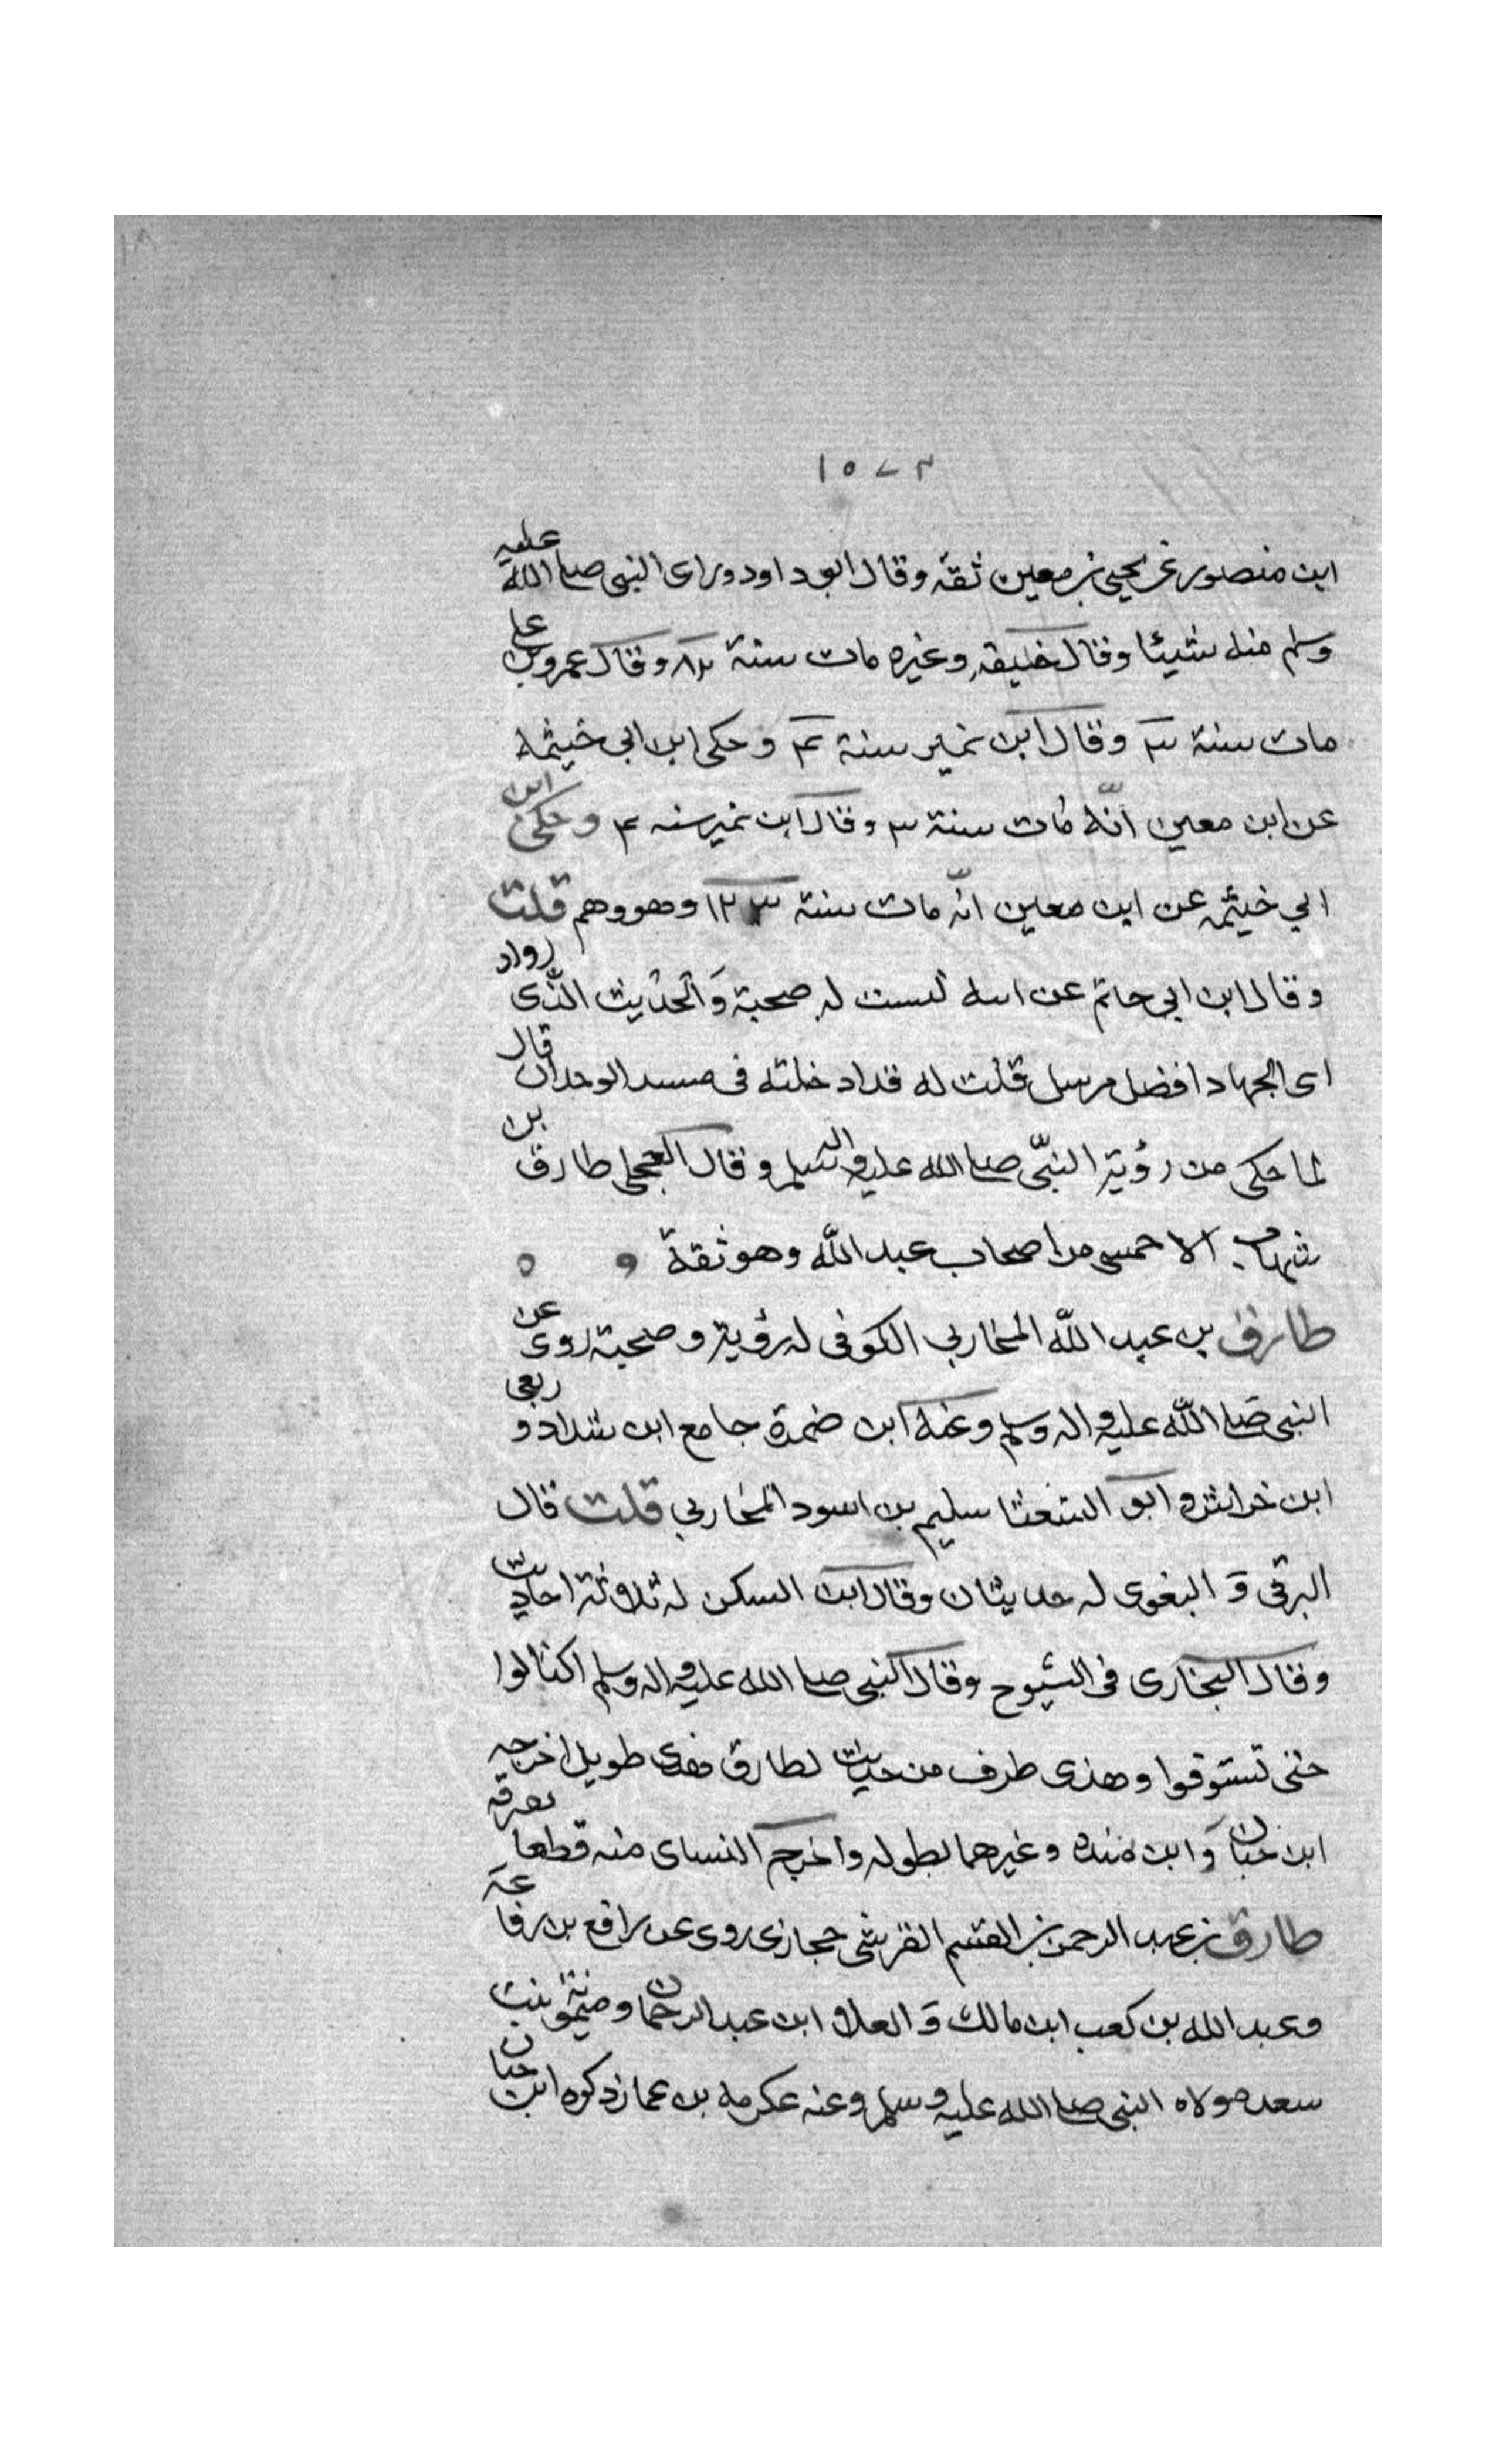 ١٥٧٣
ابن منصور عن يحيى بن معين ثقة وقال ابو داود وراى النبى صلى الله عليه
وسلم منه شيئا وقال خليفه وغيره مات سنة ٨٢ وقال عمرو بن على
مات سنة ٣ وقال ابن نمير سنة ٤ وحكى ابن ابى خيثمه
عن ابن معين انّه مات سنة ٣ وقال ابن نمير سنه ٤ وحكى ابن
ابي خيثمه عن ابن معين انّه مات سنة ١٢٣ وهو وهم قلت
وقال ابن ابي حاتم عن ابيه ليست له صحبة وَالحديث الذى رواه
اى الجهاد افضل مرسل قلت له قد ادخلته فى مسند الوحدان قال
لما حكى من رؤية النبّى صلى الله عليه واله وسلم وقال العجلى طارق بن
شهاب الاحمسى من اصحاب عبد الله وهو ثقة
طارق بن عبد الله المخاربي الكوفى له رؤية وصحبة روى عن
النبى صلى الله عليه واله وسلم وعنه ابن ضمرة جامع ابن شداد و ربعى
ابن خراش و ابو الشعثا سليم بن اسود المخاربي قلت قال
البرقى وَ البغوى له حديثان وقال ابن السكن له ثلاثة احاديث
وقال البخارى فى الشيوح وقال النبى صلى الله عليه واله وسلم اكتالوا
حتى تستوفوا وهذى طرف من حديث لطارق طويل اخرجه
ابن حبان وَ ابن منده وغيرهما بطوله واخرج النساى منه قطعا
طارق بن عبد الرحمن بن القسم القرشى حجازى روى عن رافع بن رفاعة
وعبد الله بن كعب ابن مالك وَ العلا ابن عبد الرحمان وميمونة بنت
سعد مولاه النبى صلى الله عليه وسلم وعنه عكرمه بن عمار ذكره ابن حبان